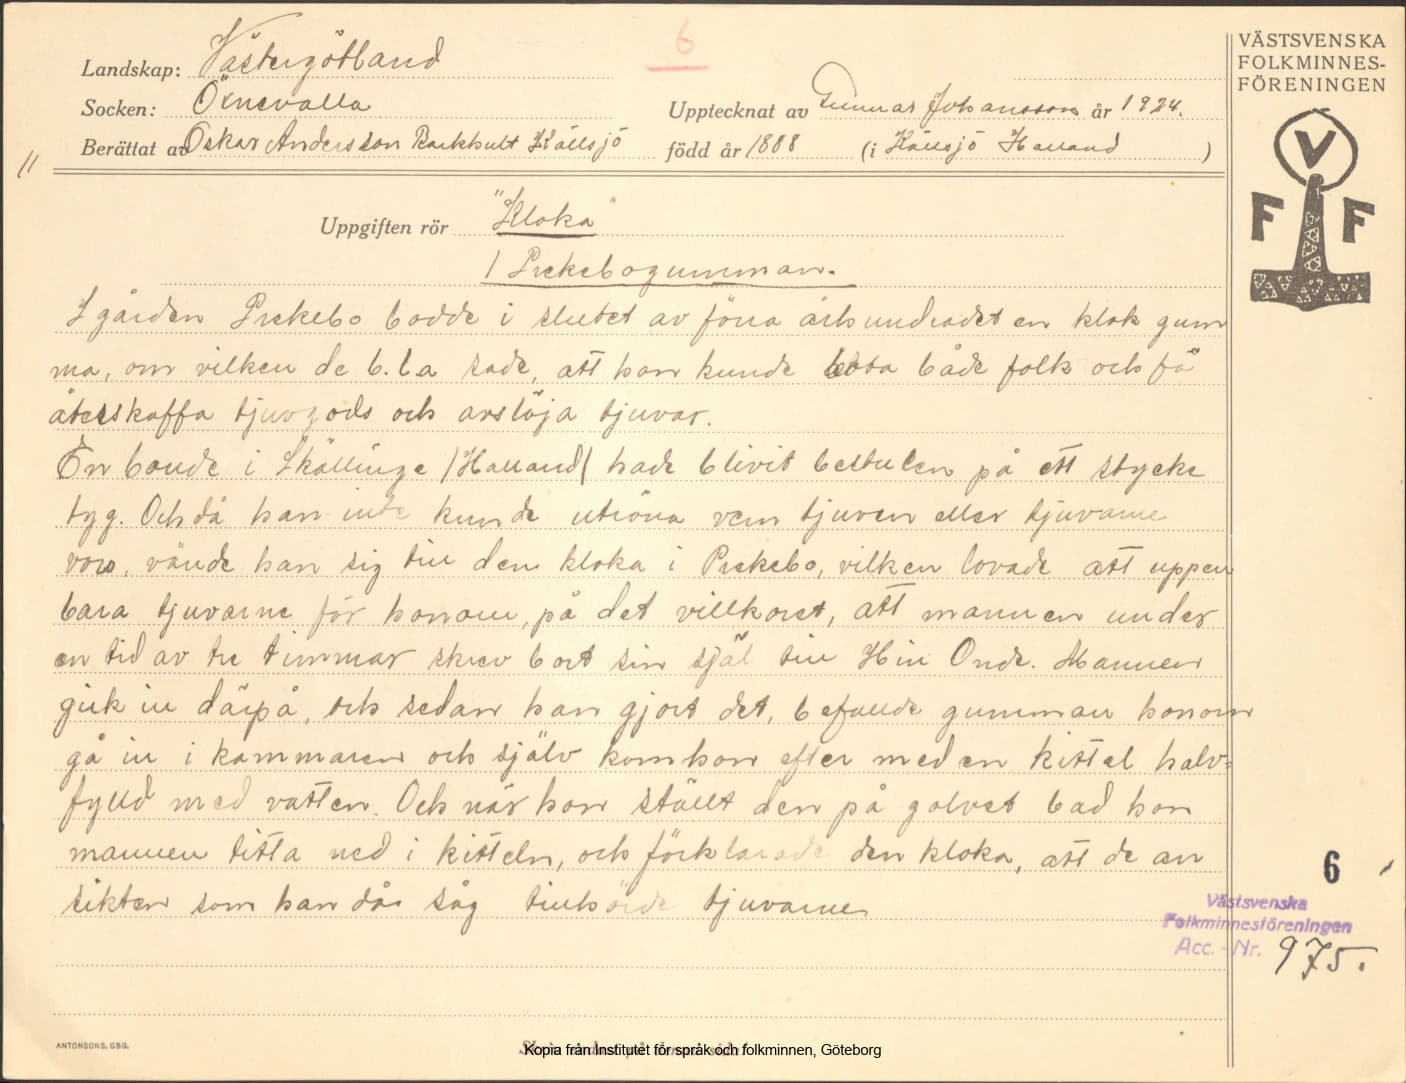 6
VÄSTSVENSKA
FOLKMINNES-
FÖRENINGEN
V
F F
Landskap: Västergötland
Socken: Öxnevalla
Upptecknat av Gunnar Johansson år 1924.
Berättat av Oskar Andersson Backhult Källsjö född år 1888 (i Källsjö Halland )
11
Uppgiften rör "Kloka"
/ Prekebogumman.
I gården Prekebo bodde i slutet av förra århundradet en klok gum
ma, om vilken de b.l.a sade, att hon kunde bota både folk och fä
återskaffa tjuvgods och avslöja tjuvar.
En bonde i Skällinge /Halland/ hade blivit bestulen på ett stycke
tyg. Och då han inte kunde utröna vem tjuven eller tjuvarne
voro, vände han sig till den kloka i Prekebo, vilken lovade att uppen
bara tjuvarne för honom, på det villkoret, att mannen under
en tid av tre timmar skrev bort sin själ till Hin Onde. Mannen
gick in därpå, och sedan han gjort det, befallde gumman honom
gå in i kammaren och själv kom hon efter med en kittel halv-
fylld med vatten. Och när hon ställt den på golvet bad hon
mannen titta ned i kitteln, och förklarade den kloka, att de an
sikten som han då såg tillhörde tjuvarne
6
Västsvenska
Folkminnesföreningen
Acc. - Nr. 975.
ANTONSONS, GBG.
Kopia från Institutet för språk och folkminnen, Göteborg